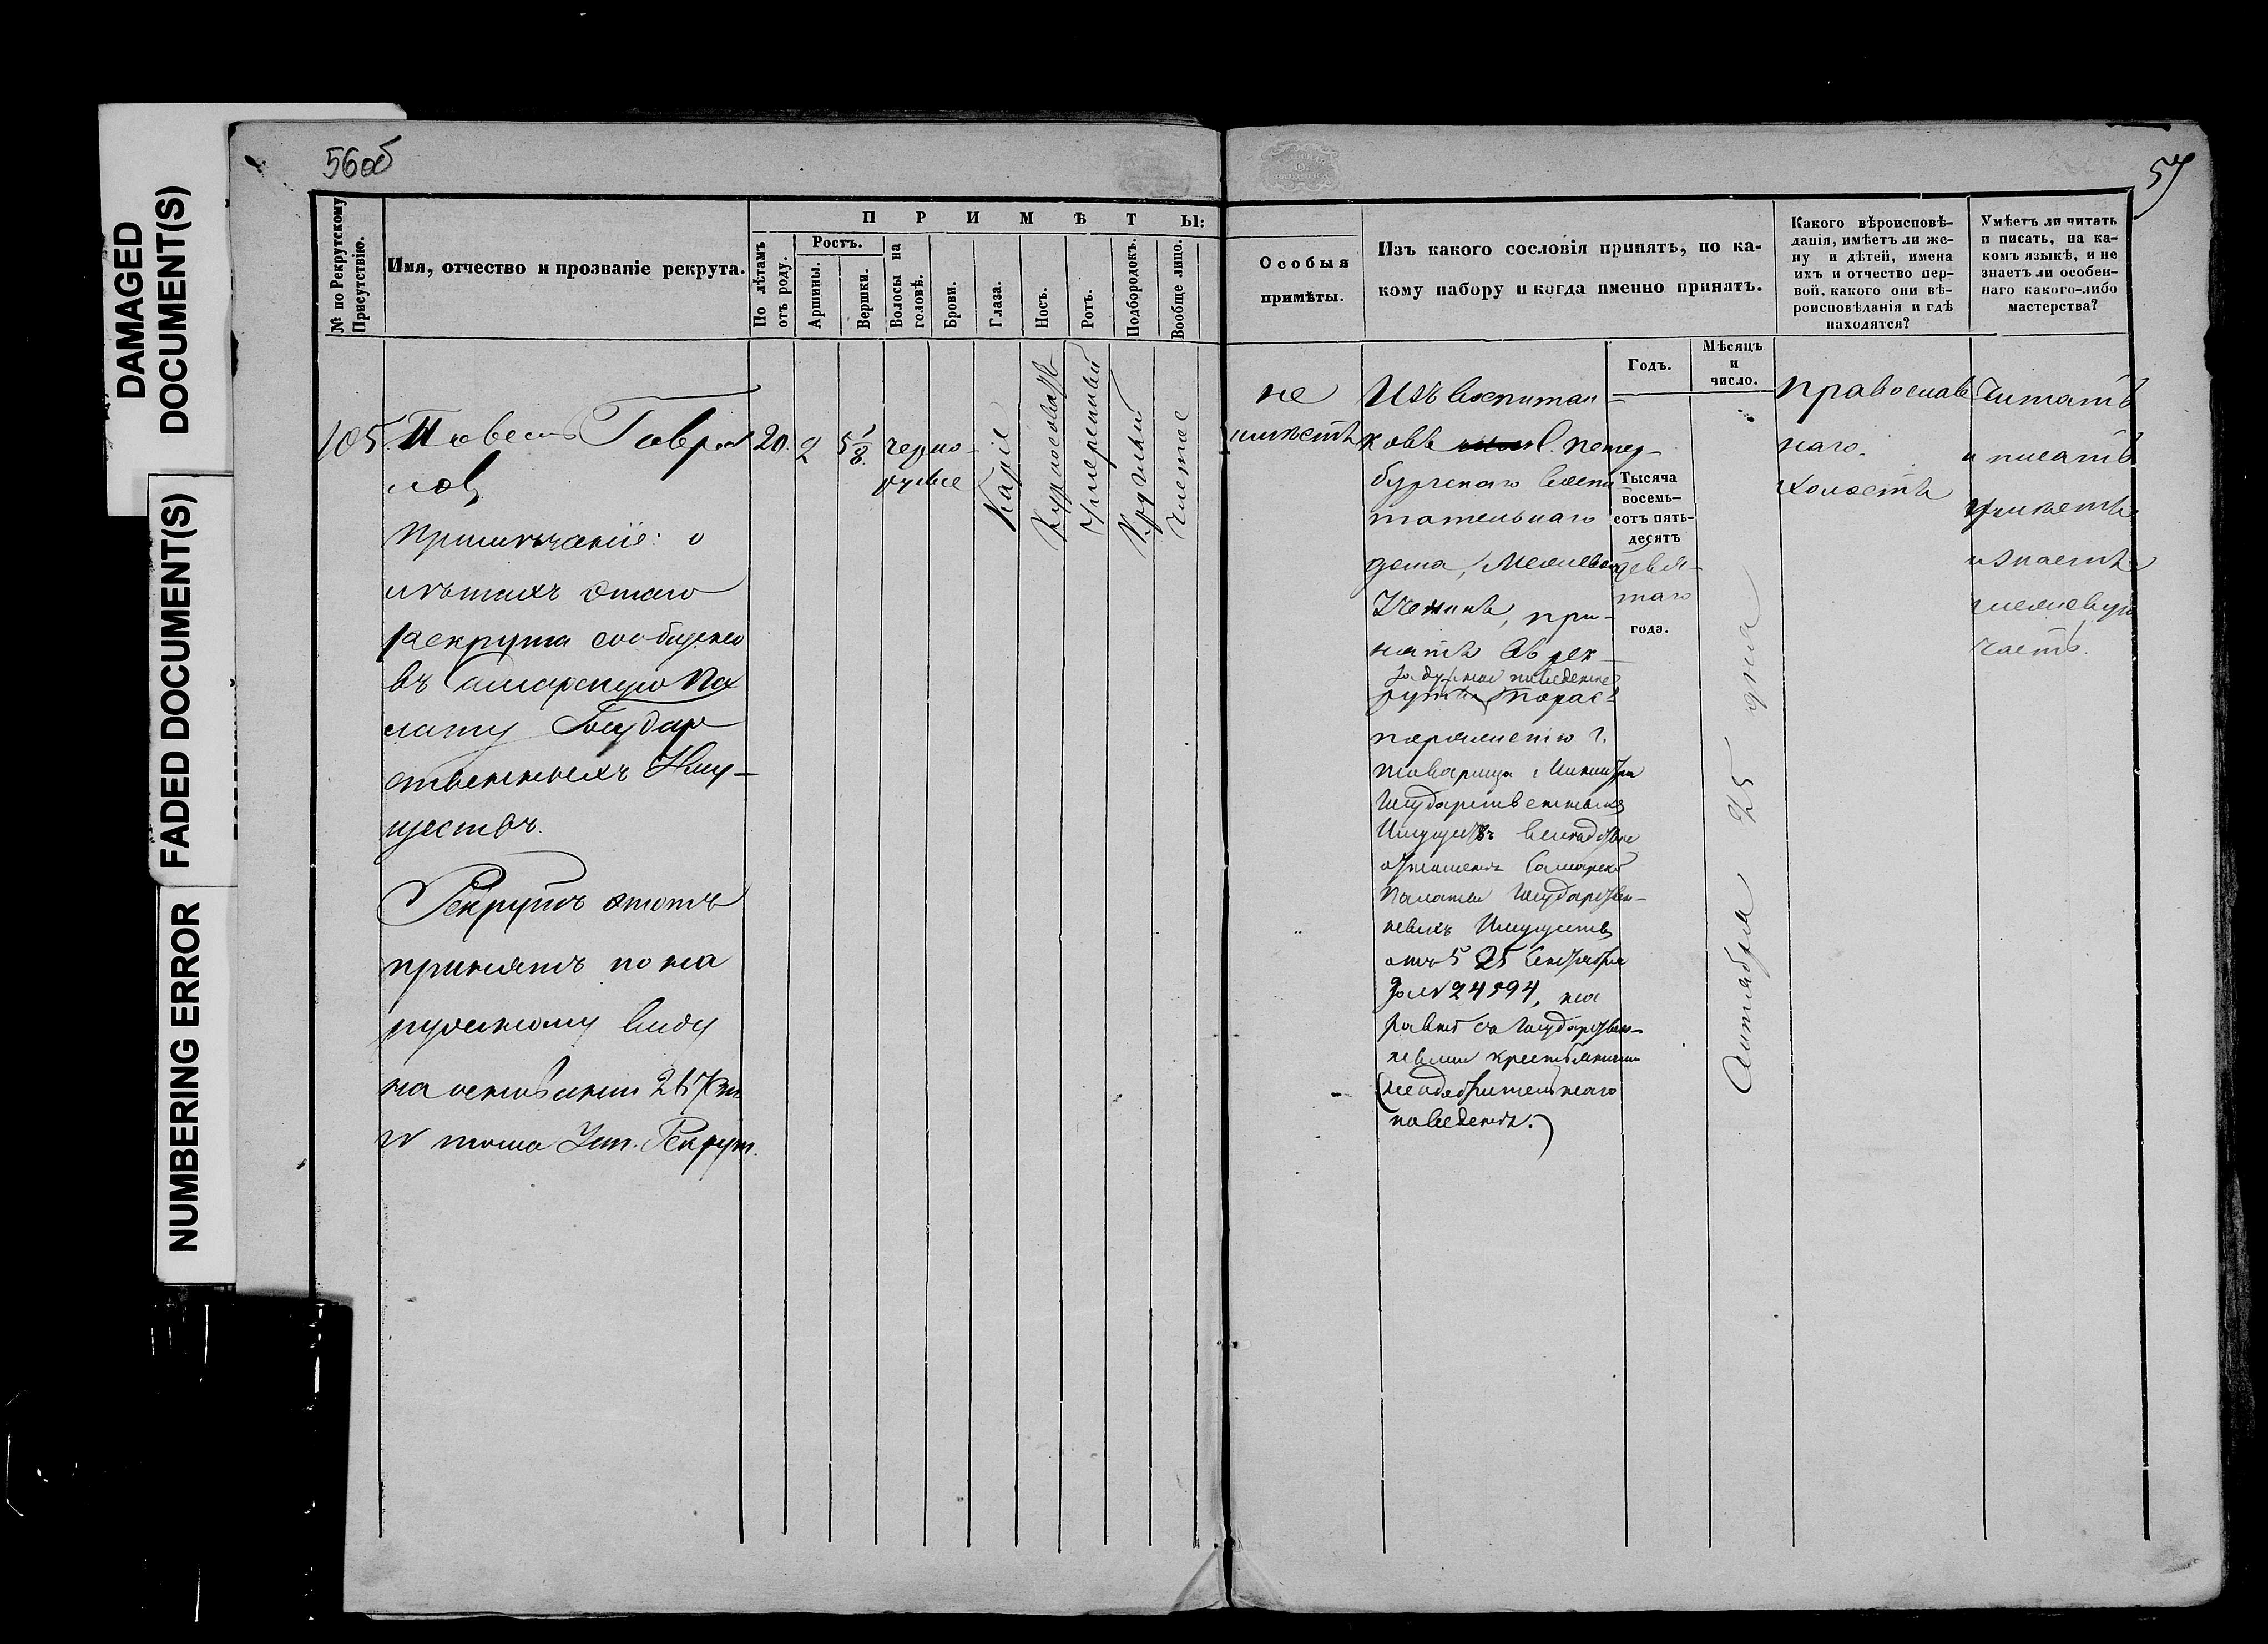 DAMAGED
DOCUMENT(S)
FADED DOCUMENT(S)
NUMBERING ERROR
56об
57
№ по Рекрутскому
Присутствію.
Имя, отчество и прозваніе рекрута.
ПРИМѢТЫ:
По лѣтамъ
отъ роду.
Ростъ.
Аршины.
Вершки.
Волосы на
головѣ.
Брови.
Глаза.
Носъ.
Ротъ.
Подбородокъ.
Вообще лицо.
Особыя
примѣты.
Изъ какого сословія принятъ, по ка-
кому набору и когда именно принятъ.
Годъ.
Мѣсяцъ
и
число.
Какого вѣроисповѣ-
данія, имѣетъ ли же-
ну и дѣтей, имена
ихъ и отчество пер-
вой, какого они вѣ-
роисповѣданія и гдѣ
находятся?
Умѣетъ ли читать
и писать, на ка-
комъ языкѣ, и не
знаетъ ли особен-
наго какого-либо
мастерства?
105.
Павелъ Гаври
ловъ
Примѣчаніе: о
лѣтахъ этаго
рекрута сообщено
въ Самарскую Па
лату Государ
ственныхъ Иму-
ществъ.
Рекрутъ этотъ
принятъ по на
ружному виду
на основаніи 267 ст
IV тома Уст. Рекрут.
20.
2
5 1/8.
черно-
русые
Каріе
Курносоватъ
Умеренный
Круглый
Чистое
не
имѣетъ
Изъ воспитан-
ковъ С. Петер-
бургскаго воспи
тательнаго
дома, при-
нятъ въ рек-
за дурное поведеніе
руты по рас-
поряженію г.
товарища Министра
Государственныхъ
Имуществъ
отношенія Самарской
Палаты Государствен-
ныхъ Имуществъ
отъ 25 Сентября
за № 24594, на
равнѣ съ Государствен-
ными крестьянами
(неодобрительнаго
поведенія.)
Тысяча
восемь-
сотъ пять-
десятъ
девя-
таго
года.
Октября 25 дня
Православ
наго.
Холостъ
Читать
и писать
умѣетъ
и знаетъ
часть.